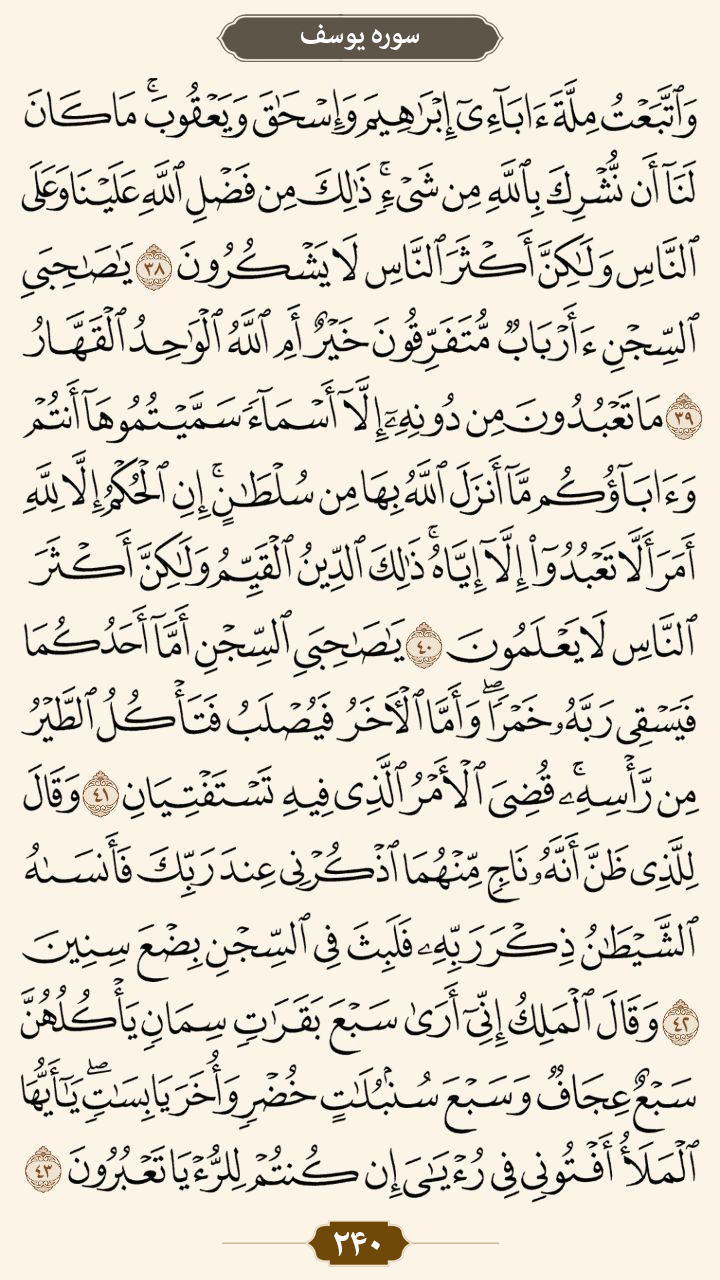 سوره یوسف
وَٱتَّبَعْتُ مِلَّةَ ءَابَآءِىٓ إِبْرَٰهِيمَ وَإِسْحَٰقَ وَيَعْقُوبَ ۚ مَا كَانَ
لَنَآ أَن نُّشْرِكَ بِٱللَّهِ مِن شَىْءٍ ۚ ذَٰلِكَ مِن فَضْلِ ٱللَّهِ عَلَيْنَا وَعَلَى
ٱلنَّاسِ وَلَٰكِنَّ أَكْثَرَ ٱلنَّاسِ لَا يَشْكُرُونَ ٣٨ يَٰصَٰحِبَىِ
ٱلسِّجْنِ ءَأَرْبَابٌ مُّتَفَرِّقُونَ خَيْرٌ أَمِ ٱللَّهُ ٱلْوَٰحِدُ ٱلْقَهَّارُ
٣٩ مَا تَعْبُدُونَ مِن دُونِهِۦٓ إِلَّآ أَسْمَآءً سَمَّيْتُمُوهَآ أَنتُمْ
وَءَابَآؤُكُم مَّآ أَنزَلَ ٱللَّهُ بِهَا مِن سُلْطَٰنٍ ۚ إِنِ ٱلْحُكْمُ إِلَّا لِلَّهِ
أَمَرَ أَلَّا تَعْبُدُوٓا۟ إِلَّآ إِيَّاهُ ۚ ذَٰلِكَ ٱلدِّينُ ٱلْقَيِّمُ وَلَٰكِنَّ أَكْثَرَ
ٱلنَّاسِ لَا يَعْلَمُونَ ٤٠ يَٰصَٰحِبَىِ ٱلسِّجْنِ أَمَّآ أَحَدُكُمَا
فَيَسْقِى رَبَّهُۥ خَمْرًا ۖ وَأَمَّا ٱلْءَاخَرُ فَيُصْلَبُ فَتَأْكُلُ ٱلطَّيْرُ
مِن رَّأْسِهِۦ ۚ قُضِىَ ٱلْأَمْرُ ٱلَّذِى فِيهِ تَسْتَفْتِيَانِ ٤١ وَقَالَ
لِلَّذِى ظَنَّ أَنَّهُۥ نَاجٍ مِّنْهُمَا ٱذْكُرْنِى عِندَ رَبِّكَ فَأَنسَىٰهُ
ٱلشَّيْطَٰنُ ذِكْرَ رَبِّهِۦ فَلَبِثَ فِى ٱلسِّجْنِ بِضْعَ سِنِينَ
٤٢ وَقَالَ ٱلْمَلِكُ إِنِّىٓ أَرَىٰ سَبْعَ بَقَرَٰتٍ سِمَانٍ يَأْكُلُهُنَّ
سَبْعٌ عِجَافٌ وَسَبْعَ سُنۢبُلَٰتٍ خُضْرٍ وَأُخَرَ يَابِسَٰتٍ ۖ يَٰٓأَيُّهَا
ٱلْمَلَأُ أَفْتُونِى فِى رُءْيَٰىَ إِن كُنتُمْ لِلرُّءْيَا تَعْبُرُونَ ٤٣
۲۴۰